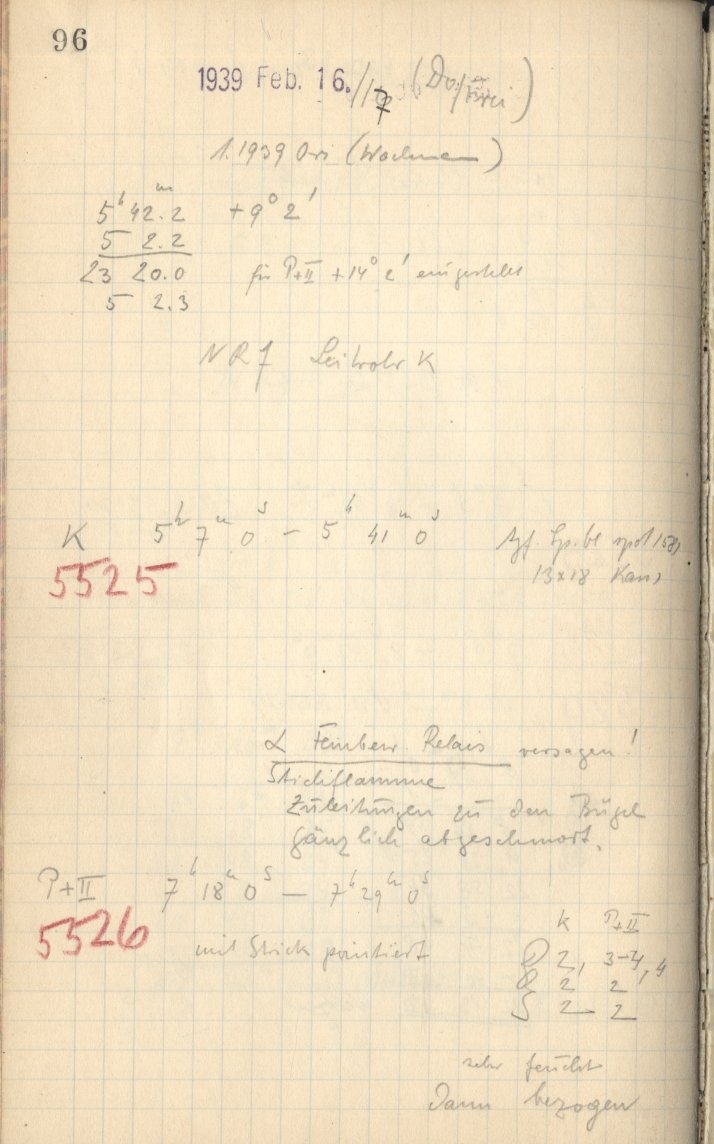 96
1939 Feb. 16./17 (Do/Frei)
1.1939 Ori (Wachmann)
5ʰ 42ᵐ.2 +9° 2'
5 2.2
23 20.0 für P+II +14° 2' eingestellt
5 2.3
NR7 Leitrohr K
K 5ʰ 7ᵐ 0ˢ – 5ʰ 41ᵐ 0ˢ
5525
13x18
α Feinbew. Relais versagen!
Stichflamme
Zuleitungen zu den Bügel
gänzlich abgeschmort.
P+II 7ʰ 18ᵐ 0ˢ — 7ʰ 29ᵐ 0ˢ
5526
mit Stick pointiert
K P+II
2, 3-4, 4
2 2
2 2
sehr feucht
Dann bezogen